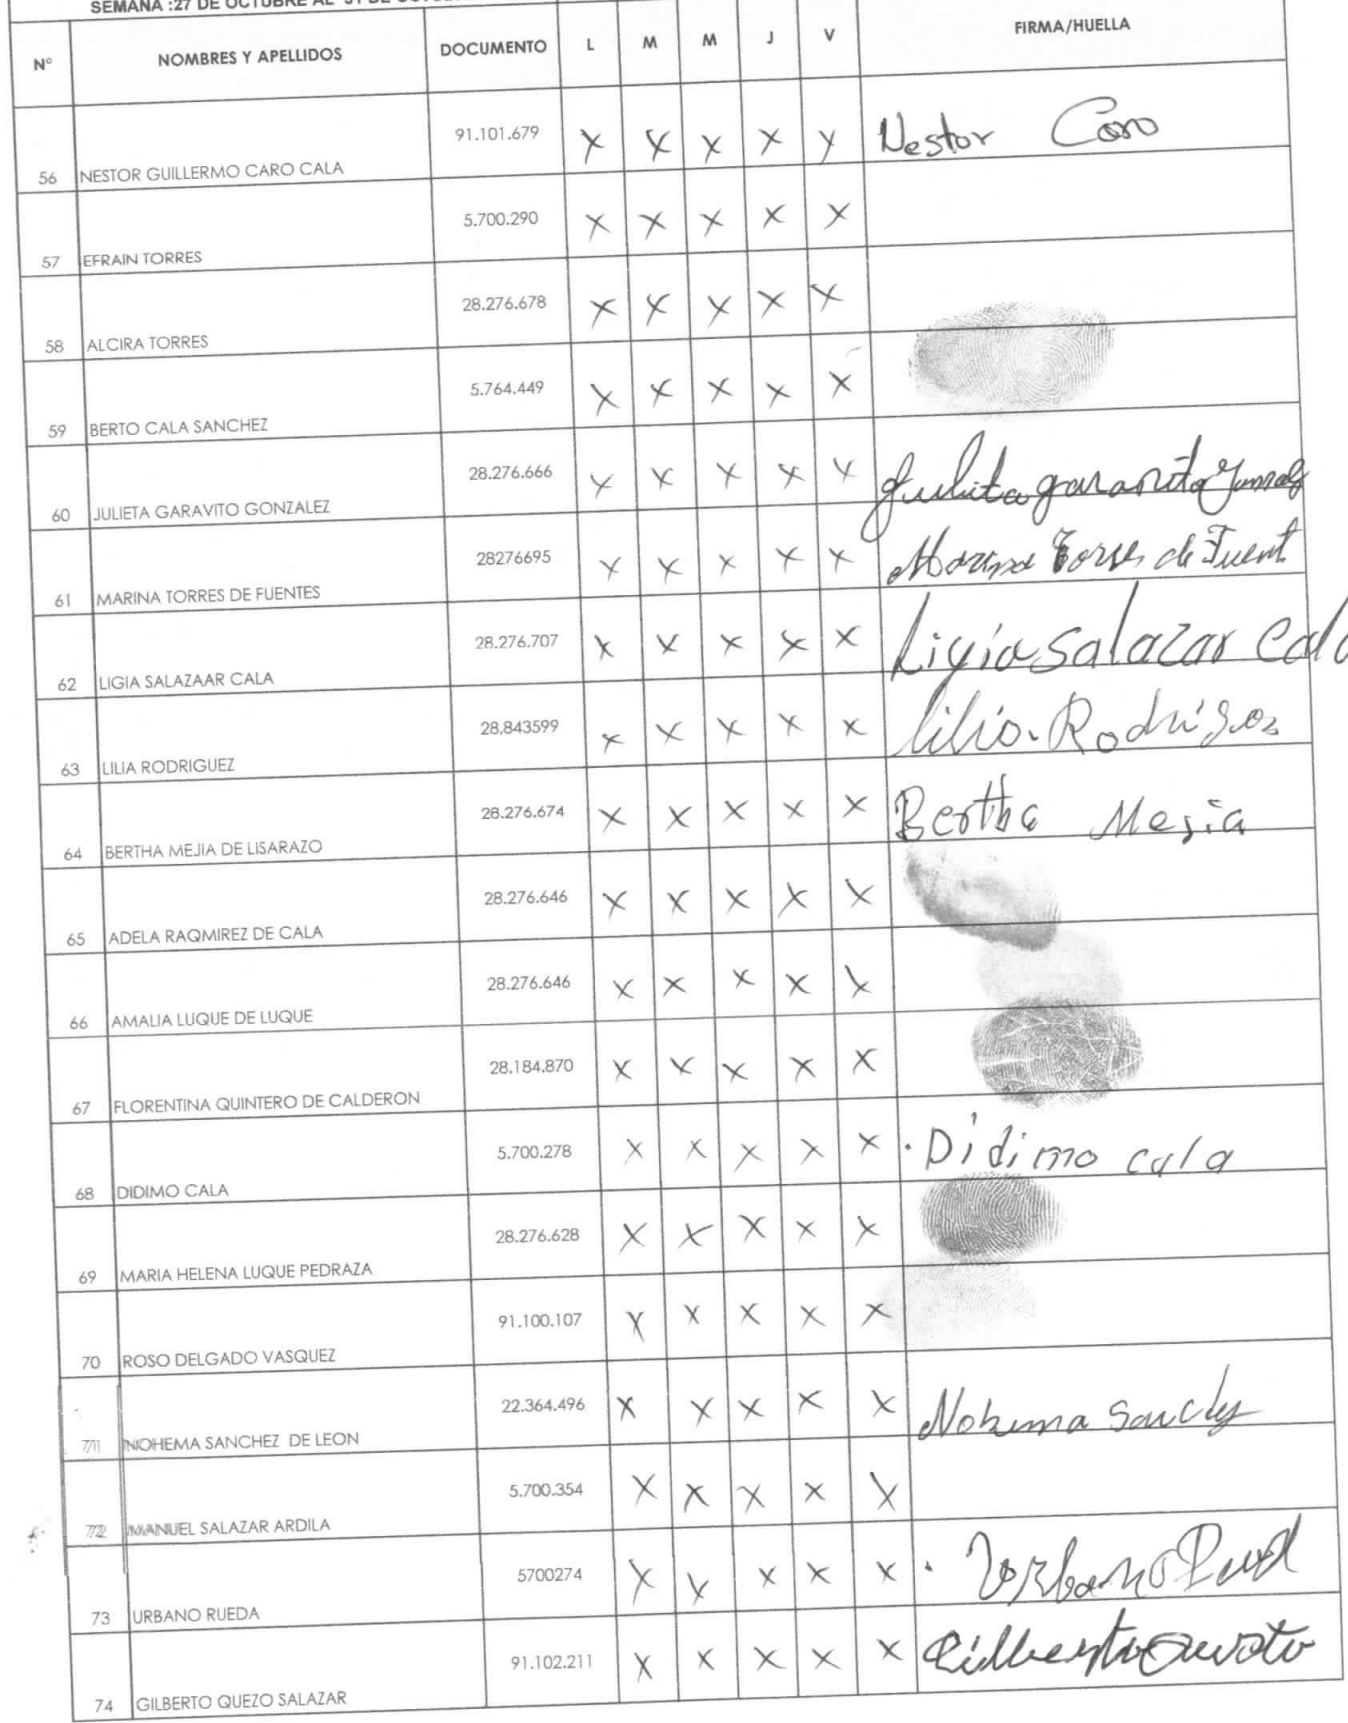 SEMANA :27 DE OCTUBRE AL 31 DE
N° NOMBRES Y APELLIDOS DOCUMENTO L M M J V FIRMA/HUELLA
56 NESTOR GUILLERMO CARO CALA 91.101.679 X X X X X Nestor Caro
57 EFRAIN TORRES 5.700.290 X X X X X
58 ALCIRA TORRES 28.276.678 X X X X X
59 BERTO CALA SANCHEZ 5.764.449 X X X X X
60 JULIETA GARAVITO GONZALEZ 28.276.666 X X X X X Julieta garavito
61 MARINA TORRES DE FUENTES 28276695 X X X X X Marina Torres de Fuent
62 LIGIA SALAZAAR CALA 28.276.707 X X X X X Ligia Salazar Cala
63 LILIA RODRIGUEZ 28.843599 X X X X X lilia. Rodrigez
64 BERTHA MEJIA DE LISARAZO 28.276.674 X X X X X Bertha Mejia
65 ADELA RAQMIREZ DE CALA 28.276.646 X X X X X
66 AMALIA LUQUE DE LUQUE 28.276.646 X X X X X
67 FLORENTINA QUINTERO DE CALDERON 28.184.870 X X X X X
68 DIDIMO CALA 5.700.278 X X X X X Didimo cala
69 MARIA HELENA LUQUE PEDRAZA 28.276.628 X X X X X
70 ROSO DELGADO VASQUEZ 91.100.107 X X X X X
71 NOHEMA SANCHEZ DE LEON 22.364.496 X X X X X Nohema
72 MANUEL SALAZAR ARDILA 5.700.354 X X X X X
73 URBANO RUEDA 5700274 X X X X X Urbano
74 GILBERTO QUEZO SALAZAR 91.102.211 X X X X X Gilberto